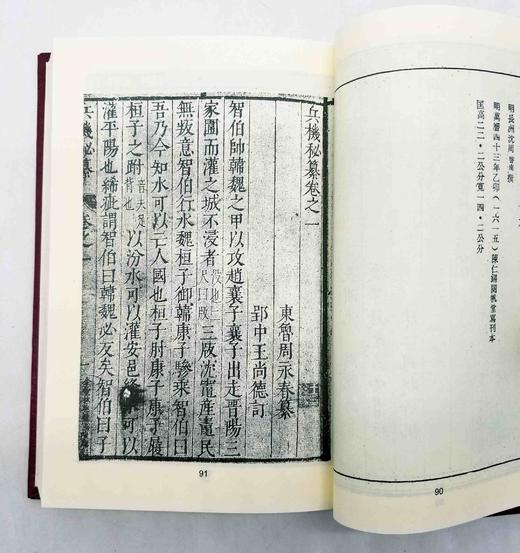 明長洲沈周啓南撰
明萬曆四十三年乙卯(一六一五)陳仁錫閱帆堂寫刊本
匡高二二·二公分寬一四·二公分
90
兵機秘纂卷之一
東魯周永春纂
郢中王尚德訂
智伯帥韓魏之甲以攻趙襄子襄子出走晋陽三
家圍而灌之城不浸者沒也二尺曰版三版沈竈產鼃民
無叛意智伯行水魏桓子御韓康子驂乘智伯曰
吾乃今知水可以亡人國也桓子肘康子康子履
桓子之跗音夫足背也以汾水可以灌安邑絳水可以
灌平陽也絺疵謂智伯曰韓魏必反矣智伯曰子
兵機秘纂 卷之一
91